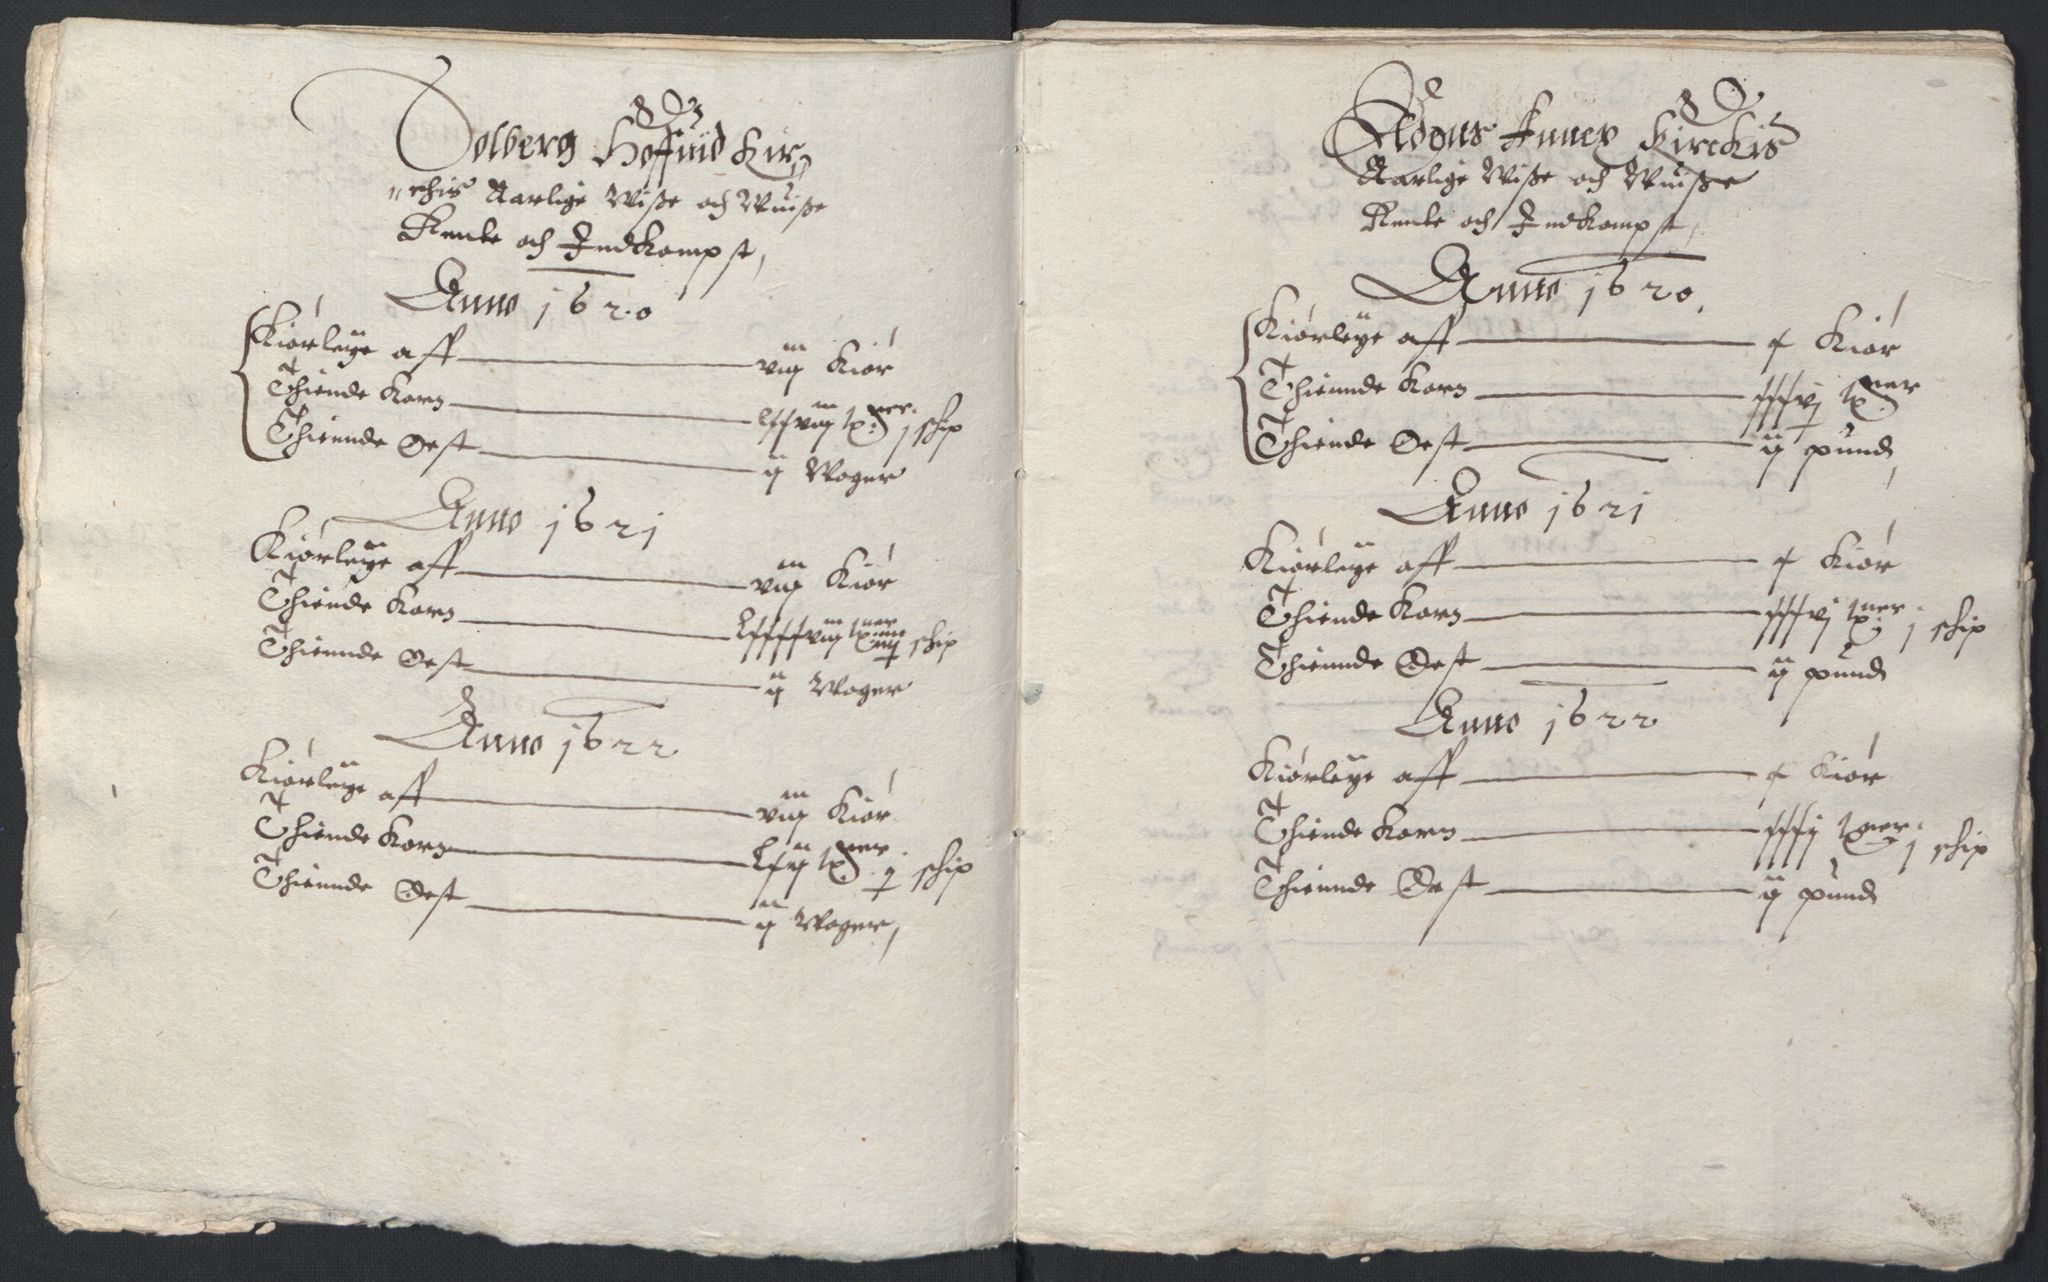 Solberg Hoffuid Kir,,
,,chis Aarlige Wiße och Wuiße
Rente och Indkompst,
Anno 1620
Kiørleÿe aff viij Kiør
Thiende Korn Lxxviij tp: ner. j schip
Thiennde Oest ij Woger
Anno 1621
Kiørleÿe aff viij Kiør
Thiende Korn Lxxxxviij tp: ner iiij schip
Thiennde Oest ij Woger
Anno 1622
Kiørleÿe aff viij Kiør
Thiende Korn Lxvj tp: ner j schip
Thiennde Oest ij Woger,
Annex Kirckis
Aarlige Wiße och Wuiße
Rente och Indkompst,
Anno 1620,
Kiørleÿe aff x Kiør
Thiennde Korn xxxvj tp: ner
Thiende Oest ij pund,
Anno 1621
Kiørleÿe aff x Kiør
Thiende Korn xxxvj tp: ner j schip
Thiennde Oest ij pund
Anno 1622
Kiørleÿe aff x Kiør
Thiende Korn xxxij tp: ner. j schip
Thiennde Oest ij pund